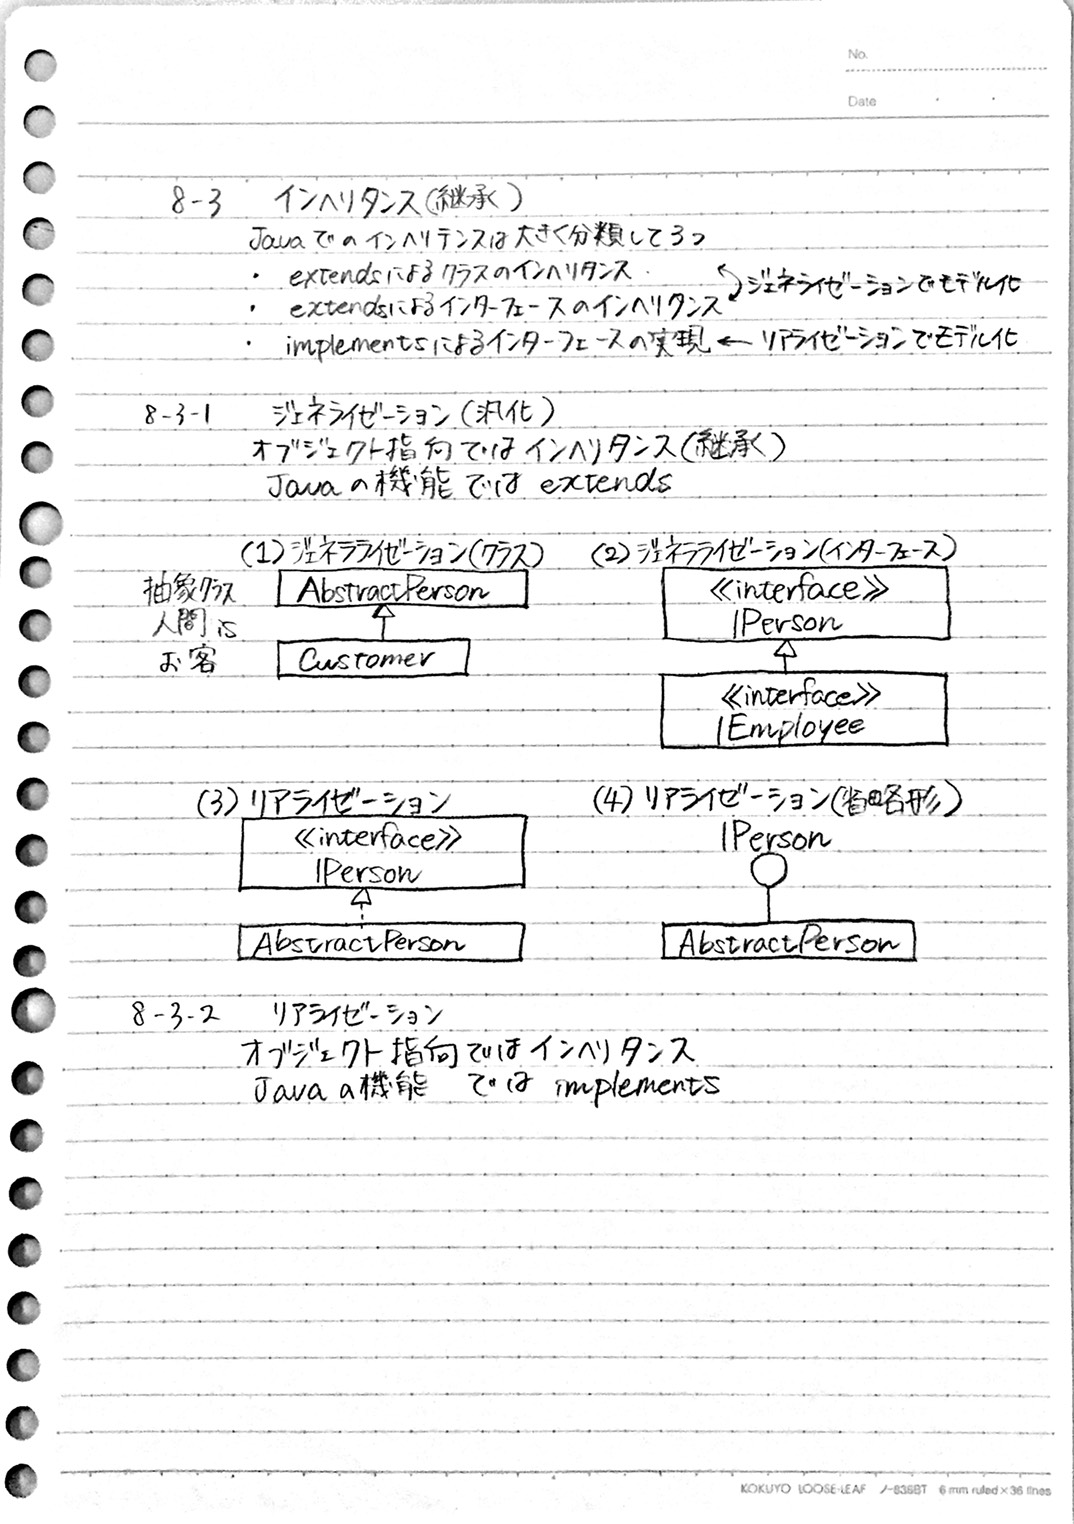 No.
Date
8-3 インヘリタンス(継承)
Javaでのインヘリテンスは大きく分類して3つ
・ extendsによるクラスのインヘリタンス
・ extendsによるインターフェースのインヘリタンス ジェネライゼーションでモデル化
・ implementsによるインターフェースの実現 ← リアライゼーションでモデル化
8-3-1 ジェネライゼーション(汎化)
オブジェクト指向ではインヘリタンス(継承)
Javaの機能ではextends
(1)ジェネラライゼーション(クラス)
抽象クラス
人間is
お客
AbstractPerson
Customer
(2)ジェネラライゼーション(インターフェース)
≪interface≫
IPerson
≪interface≫
IEmployee
(3)リアライゼーション
≪interface≫
IPerson
AbstractPerson
(4)リアライゼーション(省略形)
IPerson
AbstractPerson
8-3-2 リアライゼーション
オブジェクト指向ではインヘリタンス
Javaの機能 ではimplements
KOKUYO LOOSE-LEAF ノ-836BT 6 mm ruled×36 lines